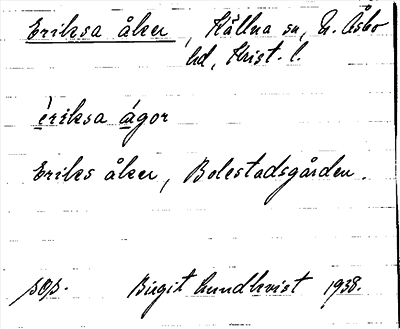 Eriksa åker, Källna sn, N. Åsbo
hd, Krist. l.
èriksa ágor
Eriks åker, Bolestadsgården.
sop. Birgit Lundkvist 1938.